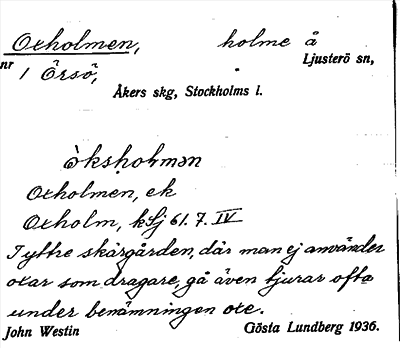 Oxholmen, holme å
nr 1 Örsö, Ljusterö sn,
Åkers skg, Stockholms l.
òksholmən
Oxholmen, ek
Oxholm, kSj 61.7. IV
I yttre skärgården, där man ej använder
oxar som dragare, gå även tjurar ofta
under benämningen oxe.
John Westin Gösta Lundberg 1936.